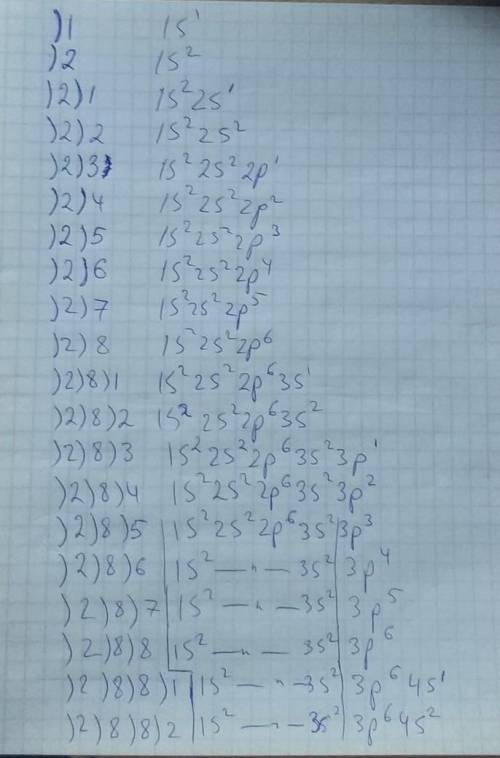 )1 1S¹
)2 1S²
)2)1 1S²2S¹
)2)2 1S²2S²
)2)3 1S²2S²2p¹
)2)4 1S²2S²2p²
)2)5 1S²2S²2p³
)2)6 1S²2S²2p⁴
)2)7 1S²2S²2p⁵
)2)8 1S²2S²2p⁶
)2)8)1 1S²2S²2p⁶3S¹
)2)8)2 1S²2S²2p⁶3S²
)2)8)3 1S²2S²2p⁶3S²3p¹
)2)8)4 1S²2S²2p⁶3S²3p²
)2)8)5 1S²2S²2p⁶3S²3p³
)2)8)6 1S² —"— 3S² 3p⁴
)2)8)7 1S² —"— 3S² 3p⁵
)2)8)8 1S² —"— 3S² 3p⁶
)2)8)8)1 1S² —"— 3S² 3p⁶4S¹
)2)8)8)2 1S² —"— 3S² 3p⁶4S²